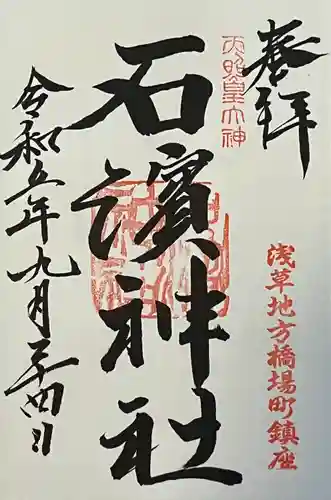 奉拝
天照皇大神
浅草地方橋場町鎮座
石濱神社
令和五年九月二十四日